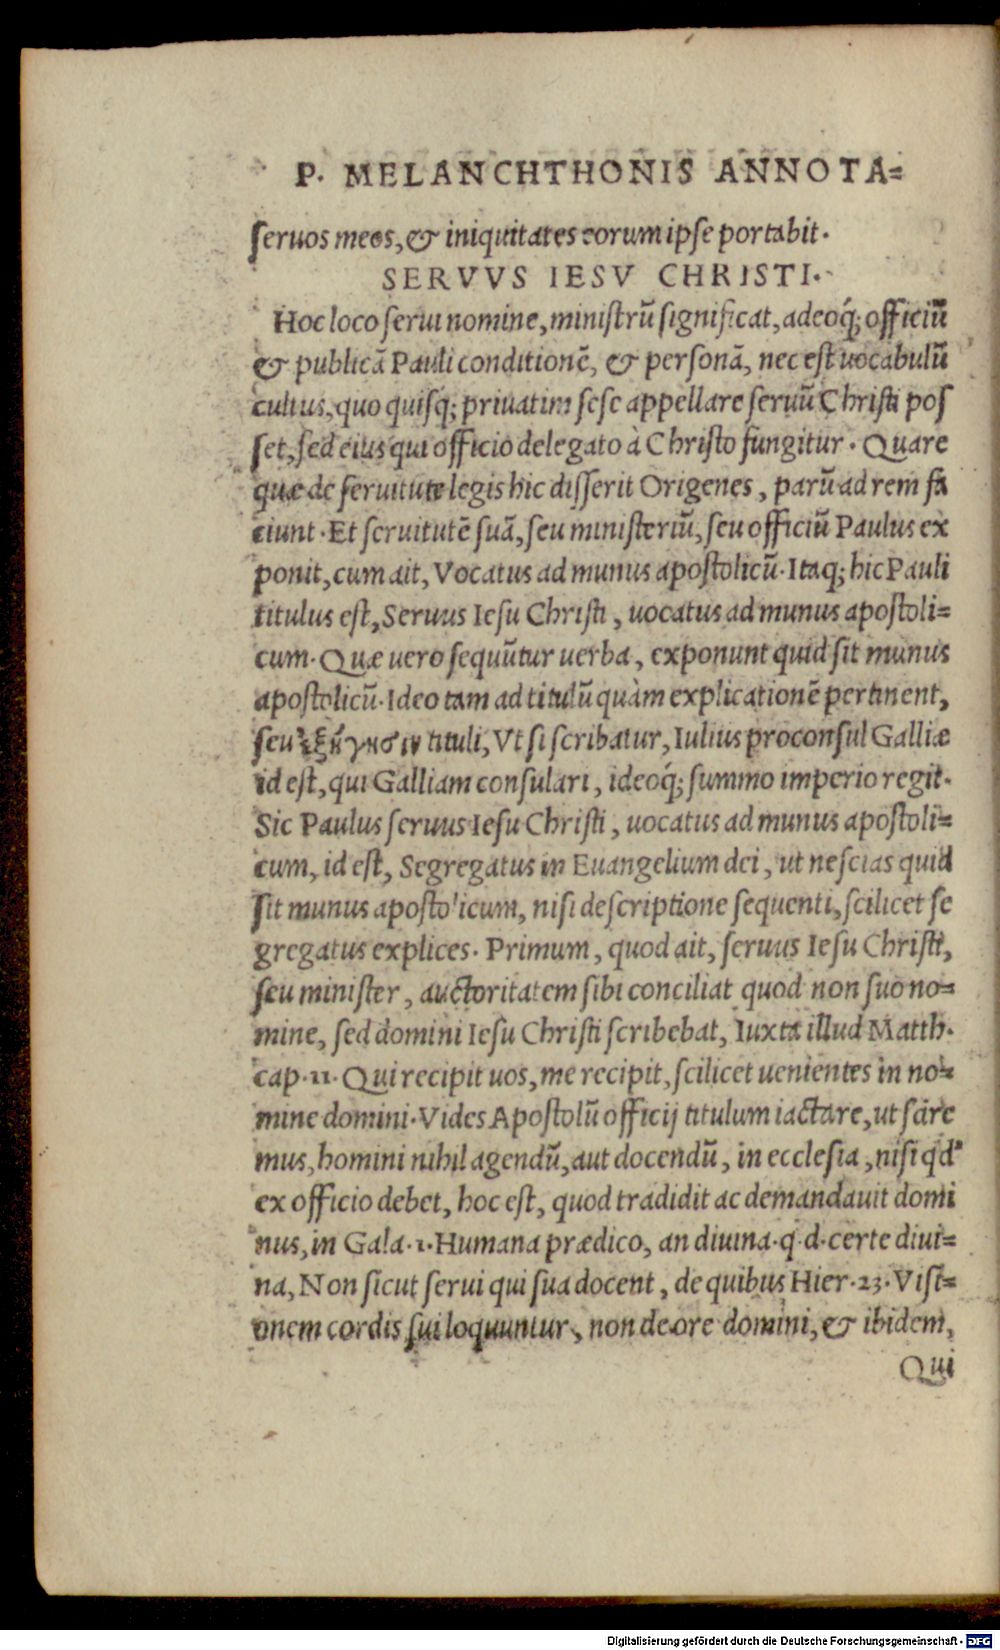 P. MELANCHTHONIS ANNOTA=
ſeruos meos, & iniquitates eorum ipſe portabit.
SERVVS IESV CHRISTI.
Hoc loco ſerui nomine, miniſtrū ſignificat, adeoq́; officiū
& publicā Pauli conditionē, & perſonā, nec eſt uocabulū
cultus, quo quiſq; priuatim ſeſe appellare ſeruū Chriſti poſ
ſet, ſed eius qui officio delegato à Chriſto fungitur. Quare
quæ de ſeruitute legis hic diſſerit Origenes, parū ad rem fa
ciunt. Et ſeruitutē ſuā, ſeu miniſteriū, ſeu officiū Paulus ex
ponit, cum ait, Vocatus ad munus apoſtolicū. Itaq; hic Pauli
titulus eſt, Seruus Ieſu Chriſti, uocatus ad munus apoſtoli=
cum. Quæ uero ſequūtur uerba, exponunt quid ſit munus
apoſtolicū. Ideo tam ad titulū quàm explicationē pertinent,
ſeu ἐξήγησιν tituli, Vt ſi ſcribatur, Iulius proconſul Galliæ
id eſt, qui Galliam conſulari, ideoq́; ſummo imperio regit.
Sic Paulus ſeruus Ieſu Chriſti, uocatus ad munus apoſtoli=
cum, id eſt, Segregatus in Euangelium dei, ut neſcias quid
ſit munus apoſtolicum, niſi deſcriptione ſequenti, ſcilicet ſe
gregatus explices. Primum, quod ait, ſeruus Ieſu Chriſti,
ſeu miniſter, auctoritatem ſibi conciliat quod non ſuo no=
mine, ſed domini Ieſu Chriſti ſcribebat, Iuxta illud Matth.
cap. 11. Qui recipit uos, me recipit, ſcilicet uenientes in no=
mine domini. Vides Apoſtolū officij titulum iactare, ut ſcire
mus, homini nihil agendū, aut docendū, in eccleſia, niſi qd'
ex officio debet, hoc eſt, quod tradidit ac demandauit domi
nus, in Gala. 1. Humana prædico, an diuina. q. d. certe diui=
na, Non ſicut ſerui qui ſua docent, de quibus Hier. 23. Viſi=
onem cordis ſui loquuntur, non de ore domini, & ibidem,
Qui
Digitalisierung gefördert durch die Deutsche Forschungsgemeinschaft - DFG